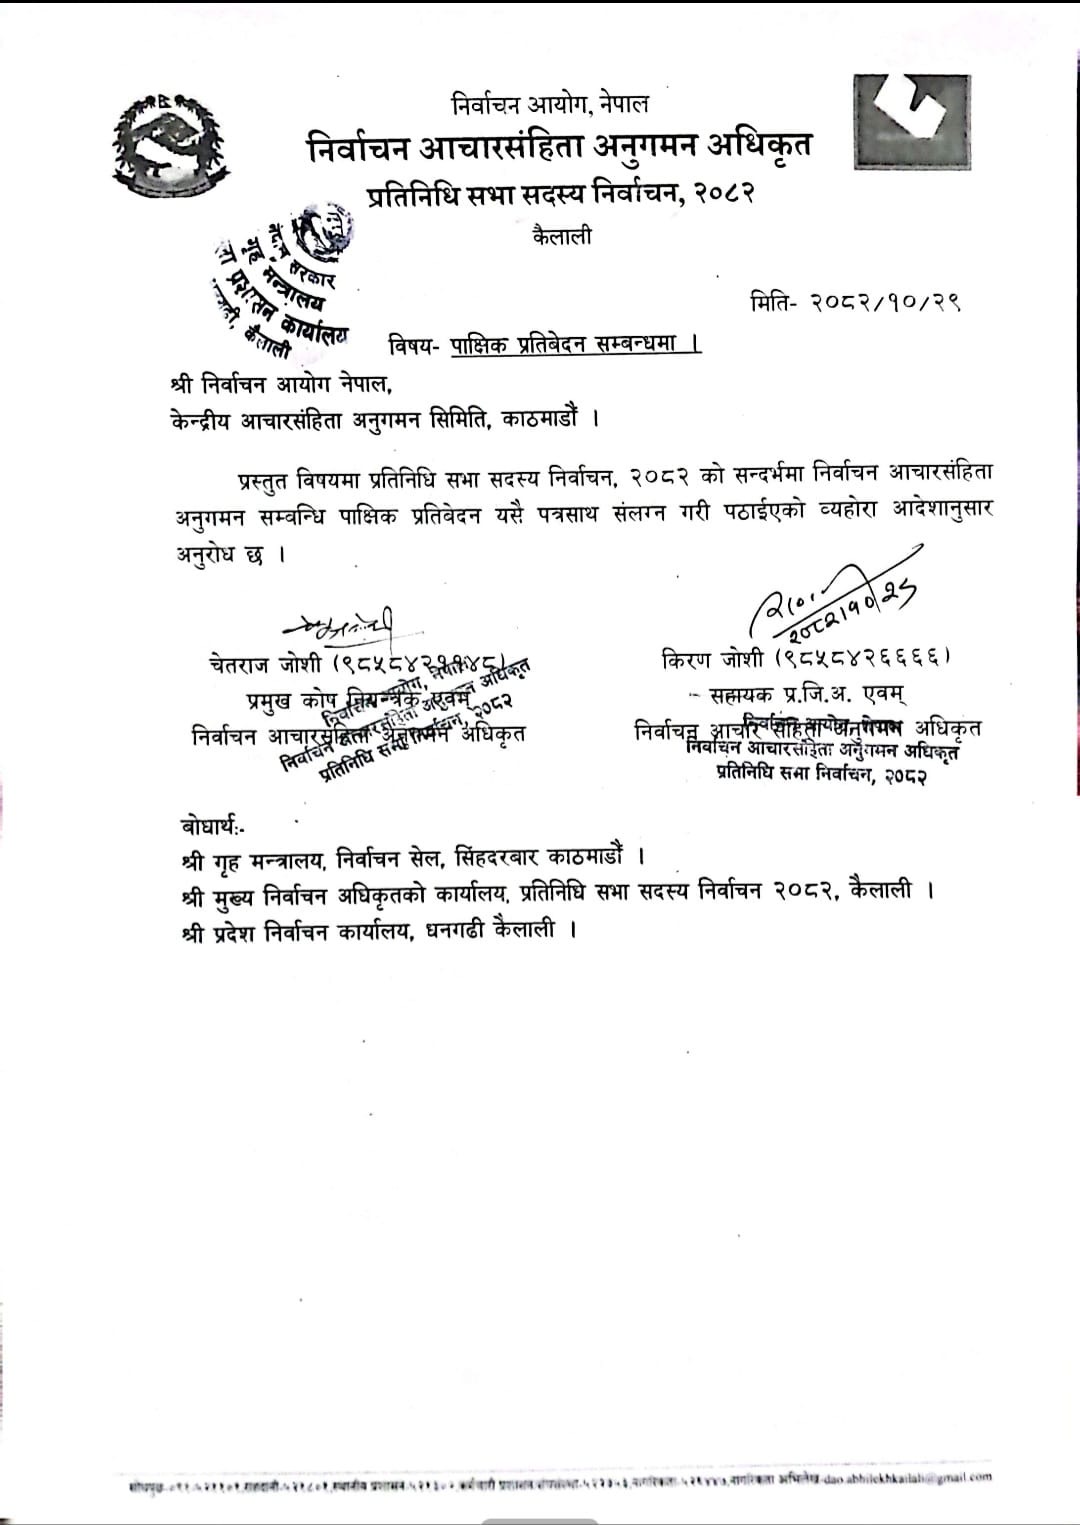 निर्वाचन आयोग, नेपाल
निर्वाचन आचारसंहिता अनुगमन अधिकृत
प्रतिनिधि सभा सदस्य निर्वाचन, २०८२
कैलाली
सरकार
गृह मन्त्रालय
प्रशासन कार्यालय
कैलाली
मिति- २०८२/१०/२९
विषय- पाक्षिक प्रतिबेदन सम्बन्धमा ।
श्री निर्वाचन आयोग नेपाल,
केन्द्रीय आचारसंहिता अनुगमन सिमिति, काठमाडौं ।
प्रस्तुत विषयमा प्रतिनिधि सभा सदस्य निर्वाचन, २०८२ को सन्दर्भमा निर्वाचन आचारसंहिता
अनुगमन सम्वन्धि पाक्षिक प्रतिवेदन यसै पत्रसाथ संलग्न गरी पठाईएको व्यहोरा आदेशानुसार
अनुरोध छ ।
चेतराज जोशी
किरण जोशी (९८५८४२६६६६)
प्रमुख कोष नियन्त्रक एवम्
सहायक प्र.जि.अ. एवम्
निर्वाचन आचारसंहिता अनुगमन अधिकृत
निर्वाचन आचार संहिता अनुगमन अधिकृत
निर्वाचन आचारसंहिता अनुगमन अधिकृत
प्रतिनिधि सभा निर्वाचन, २०८२
निर्वाचन आयोग, नेपाल
निर्वाचन आचारसंहिता अनुगमन अधिकृत
प्रतिनिधि सभा निर्वाचन, २०८२
बोधार्थ:-
श्री गृह मन्त्रालय, निर्वाचन सेल, सिंहदरबार काठमाडौं ।
श्री मुख्य निर्वाचन अधिकृतको कार्यालय, प्रतिनिधि सभा सदस्य निर्वाचन २०८२, कैलाली ।
श्री प्रदेश निर्वाचन कार्यालय, धनगढी कैलाली ।